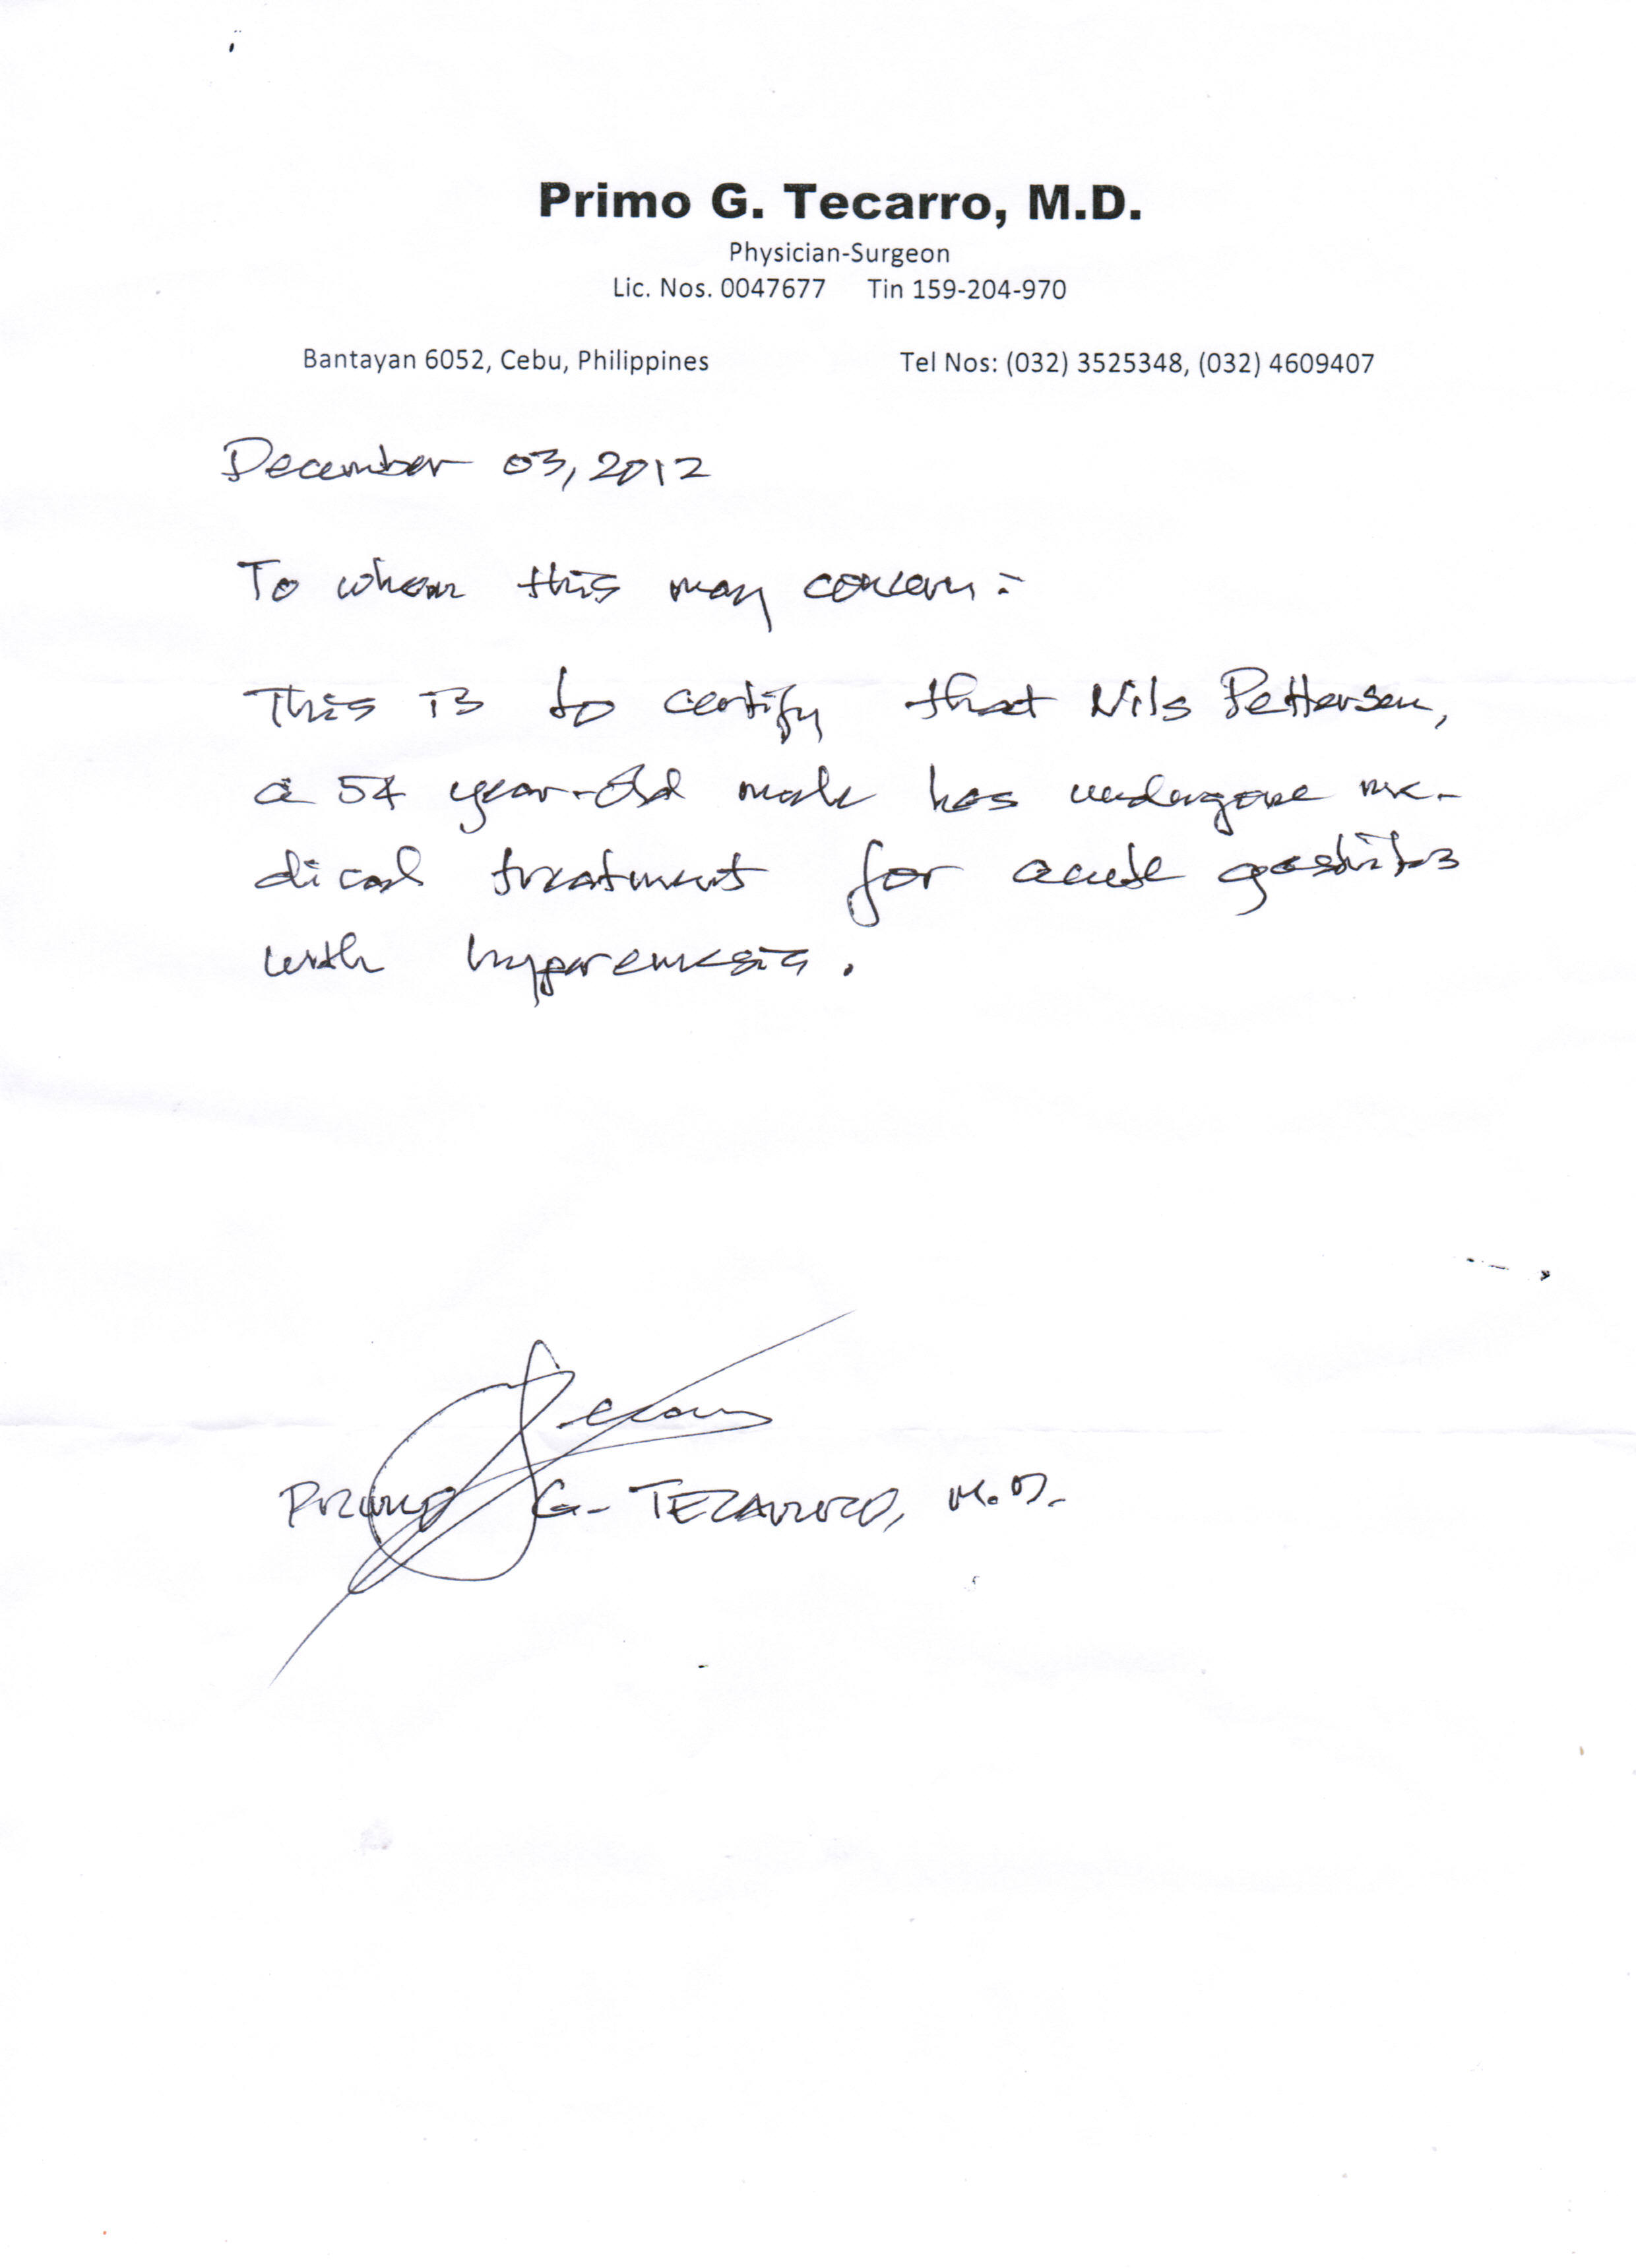 Primo G. Tecarro, M.D.
Physician-Surgeon
Lic. Nos. 0047677 Tin 159-204-970
Bantayan 6052, Cebu, Philippines Tel Nos: (032) 3525348, (032) 4609407
December 03, 2012
To whom this may concern:
This is to certify that Nils Pettersen,
a 54 year-old male has undergone me-
dical treatment for acute gastritis
with hyperemesis.
PRIMO G. TECARRO, M.D.